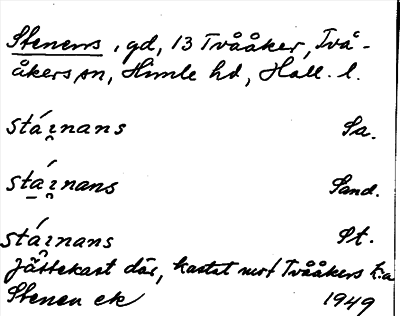 Stenens, gd, 13 Tvååker, Två-
åkers sn, Himle hd, Hall. l.
stá̯ınans Sa.
stá̯ınans Sand.
stá̯ınans St.
Jättekast där, kastat mot Tvååkers k:a
Stenen ek 1949